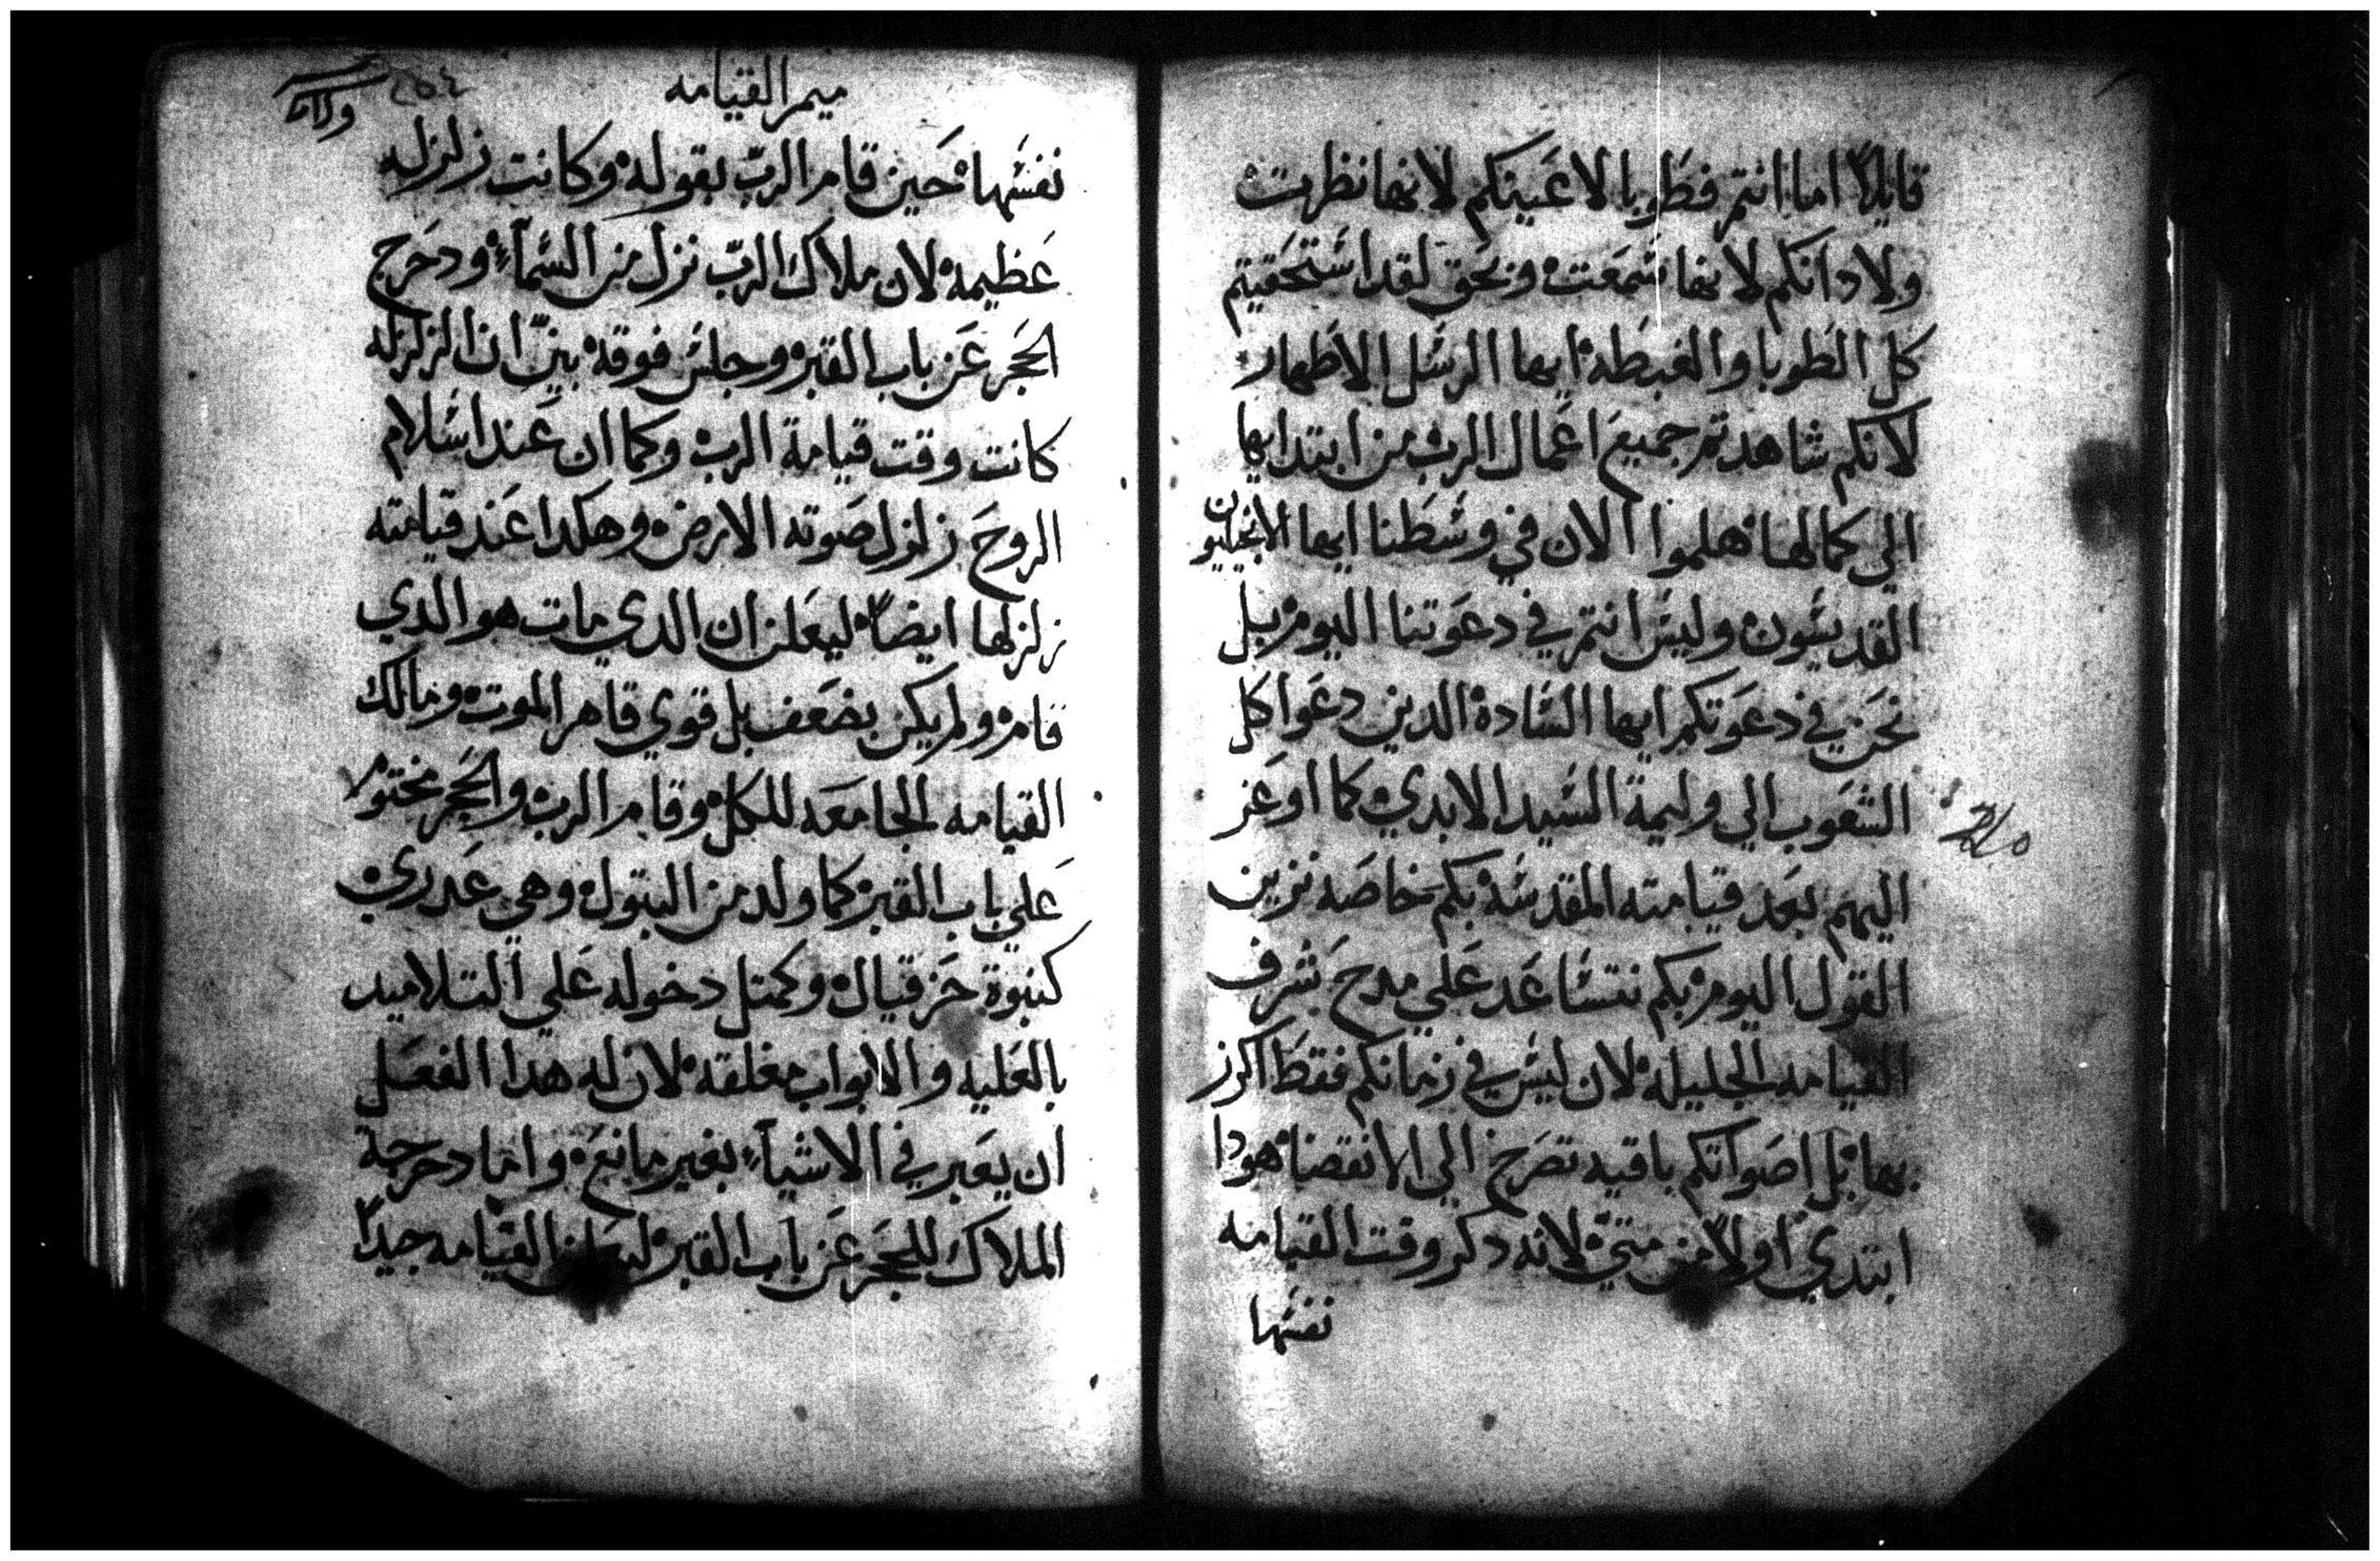 قايلاً اما انتم فطوبا لاعينكم لانها نظرت
ولادانكم لانها سمعت وبحق لقد استحقيتم
كل الطوبا والغبطه ايها الرسل الاطهار
لانكم شاهدتم جميع اعمال الرب من ابتدايها
الي كمالها هلموا الان في وسطنا ايها الانجيليون
القديسون وليس انتم في دعوتنا اليوم بل
نحن في دعوتكم ايها الساده الدين دعوا كل
الشعوب الي وليمة السيد الابدي كما اوعز
اليهم بعد قيامته المقدسه بكم خاصه نزين
القول اليوم بكم نتساعد علي مدح شرف
القيامه الجليله لان ليس في زمانكم فقط اكرز
بها بل اصواتكم باقيه تصرخ الي الانقضا هودا
ابتدي اولاً من متي لانه دكر وقت القيامه
نفسها
ميمر القيامه
نفسها حين قام الرب بقوله وكانت زلزله
عظيمه لان ملاك الرب نزل من السمآء ودحرج
الحجر عن باب القبر وجلس فوقه بين ان الزلزله
كانت وقت قيامة الرب وكما ان عند اسلام
الروح زلزل صوته الارض وهكدا عند قيامته
زلزلها ايضاً ليعلن ان الدي مات هو الدي
قام ولم يكن بضعف بل قوي قاهر الموت ومالك
القيامه الجامعه للكل وقام الرب والحجر مختوم
علي باب القبر كما ولد من البتول وهي عدري
كنبوة حزقيال وكمتل دخوله علي التلاميد
بالعليه والابواب مغلقه لان له هدا الفعل
ان يعبر في الاشيآء بغير مانع وانما دحرجة
الملاك للحجر عن باب القبر ليعلن القيامه جيداً